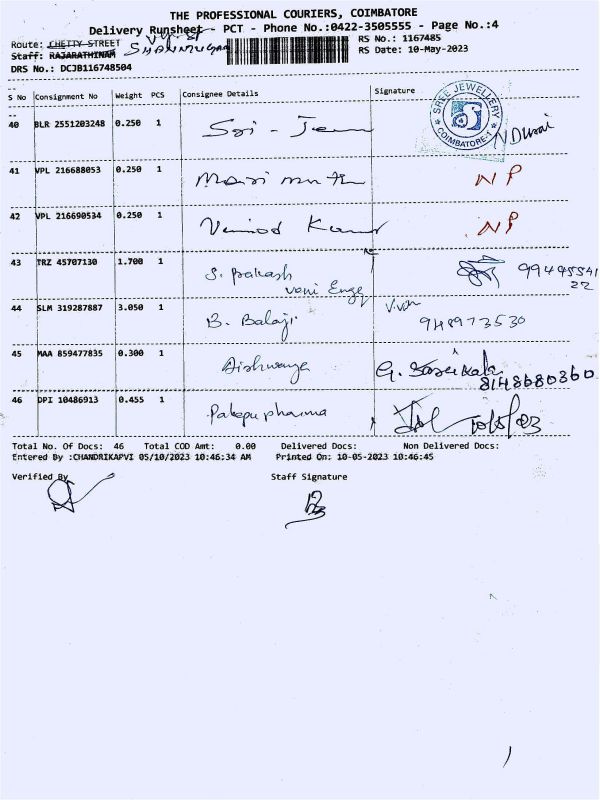 THE PROFESSIONAL COURIERS, COIMBATORE
Delivery Runsheet - PCT - Phone No.:0422-3505555 - Page No.:4
Route: CHETTY STREET V.V. St RS No.: 1167485
Staff: RAJARATHINAM SHANMUGAM RS Date: 10-May-2023
DRS No.: DCJB116748504
S No Consignment No Weight PCS Consignee Details Signature
40 BLR 2551203248 0.250 1 Sri - Jem SREE JEWELLERY COIMBATORE-1 N Durai
41 VPL 216688053 0.250 1 Mari muthu NP
42 VPL 216690534 0.250 1 Vinod Kumar NP
43 TRZ 45707130 1.700 1 S. prakash
vani Engg
44 SLM 319287887 3.050 1 B. Balaji 948973530
45 MAA 859477835 0.300 1 Aishwarya G. Sasikala
8148680360
46 DPI 10486913 0.455 1 pharma 10/5/23
Total No. Of Docs: 46 Total COD Amt: 0.00 Delivered Docs: Non Delivered Docs:
Entered By :CHANDRIKAPVI 05/10/2023 10:46:34 AM Printed On: 10-05-2023 10:46:45
Verified By Staff Signature